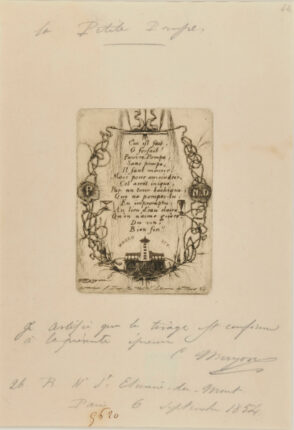 La Petite Pompe
C'en est fait,
O forfait!
Pauvre Pompe,
Sans pompe,
Il faut mourir!
Mais pour amoindrir
Cet arrêt inique,
Par un tour bachique,
Que ne pompes-tu
En impromptu
Au lieu d'eau claire
Qu'on n'aime guère
Du vin
Bien fin!!
P
N.D
Je certifie que le tirage est conforme
à la présente épreuve
C. Meryon
26 R N St Etienne-du-Mont
Paris 6 Septembre 1854
9620